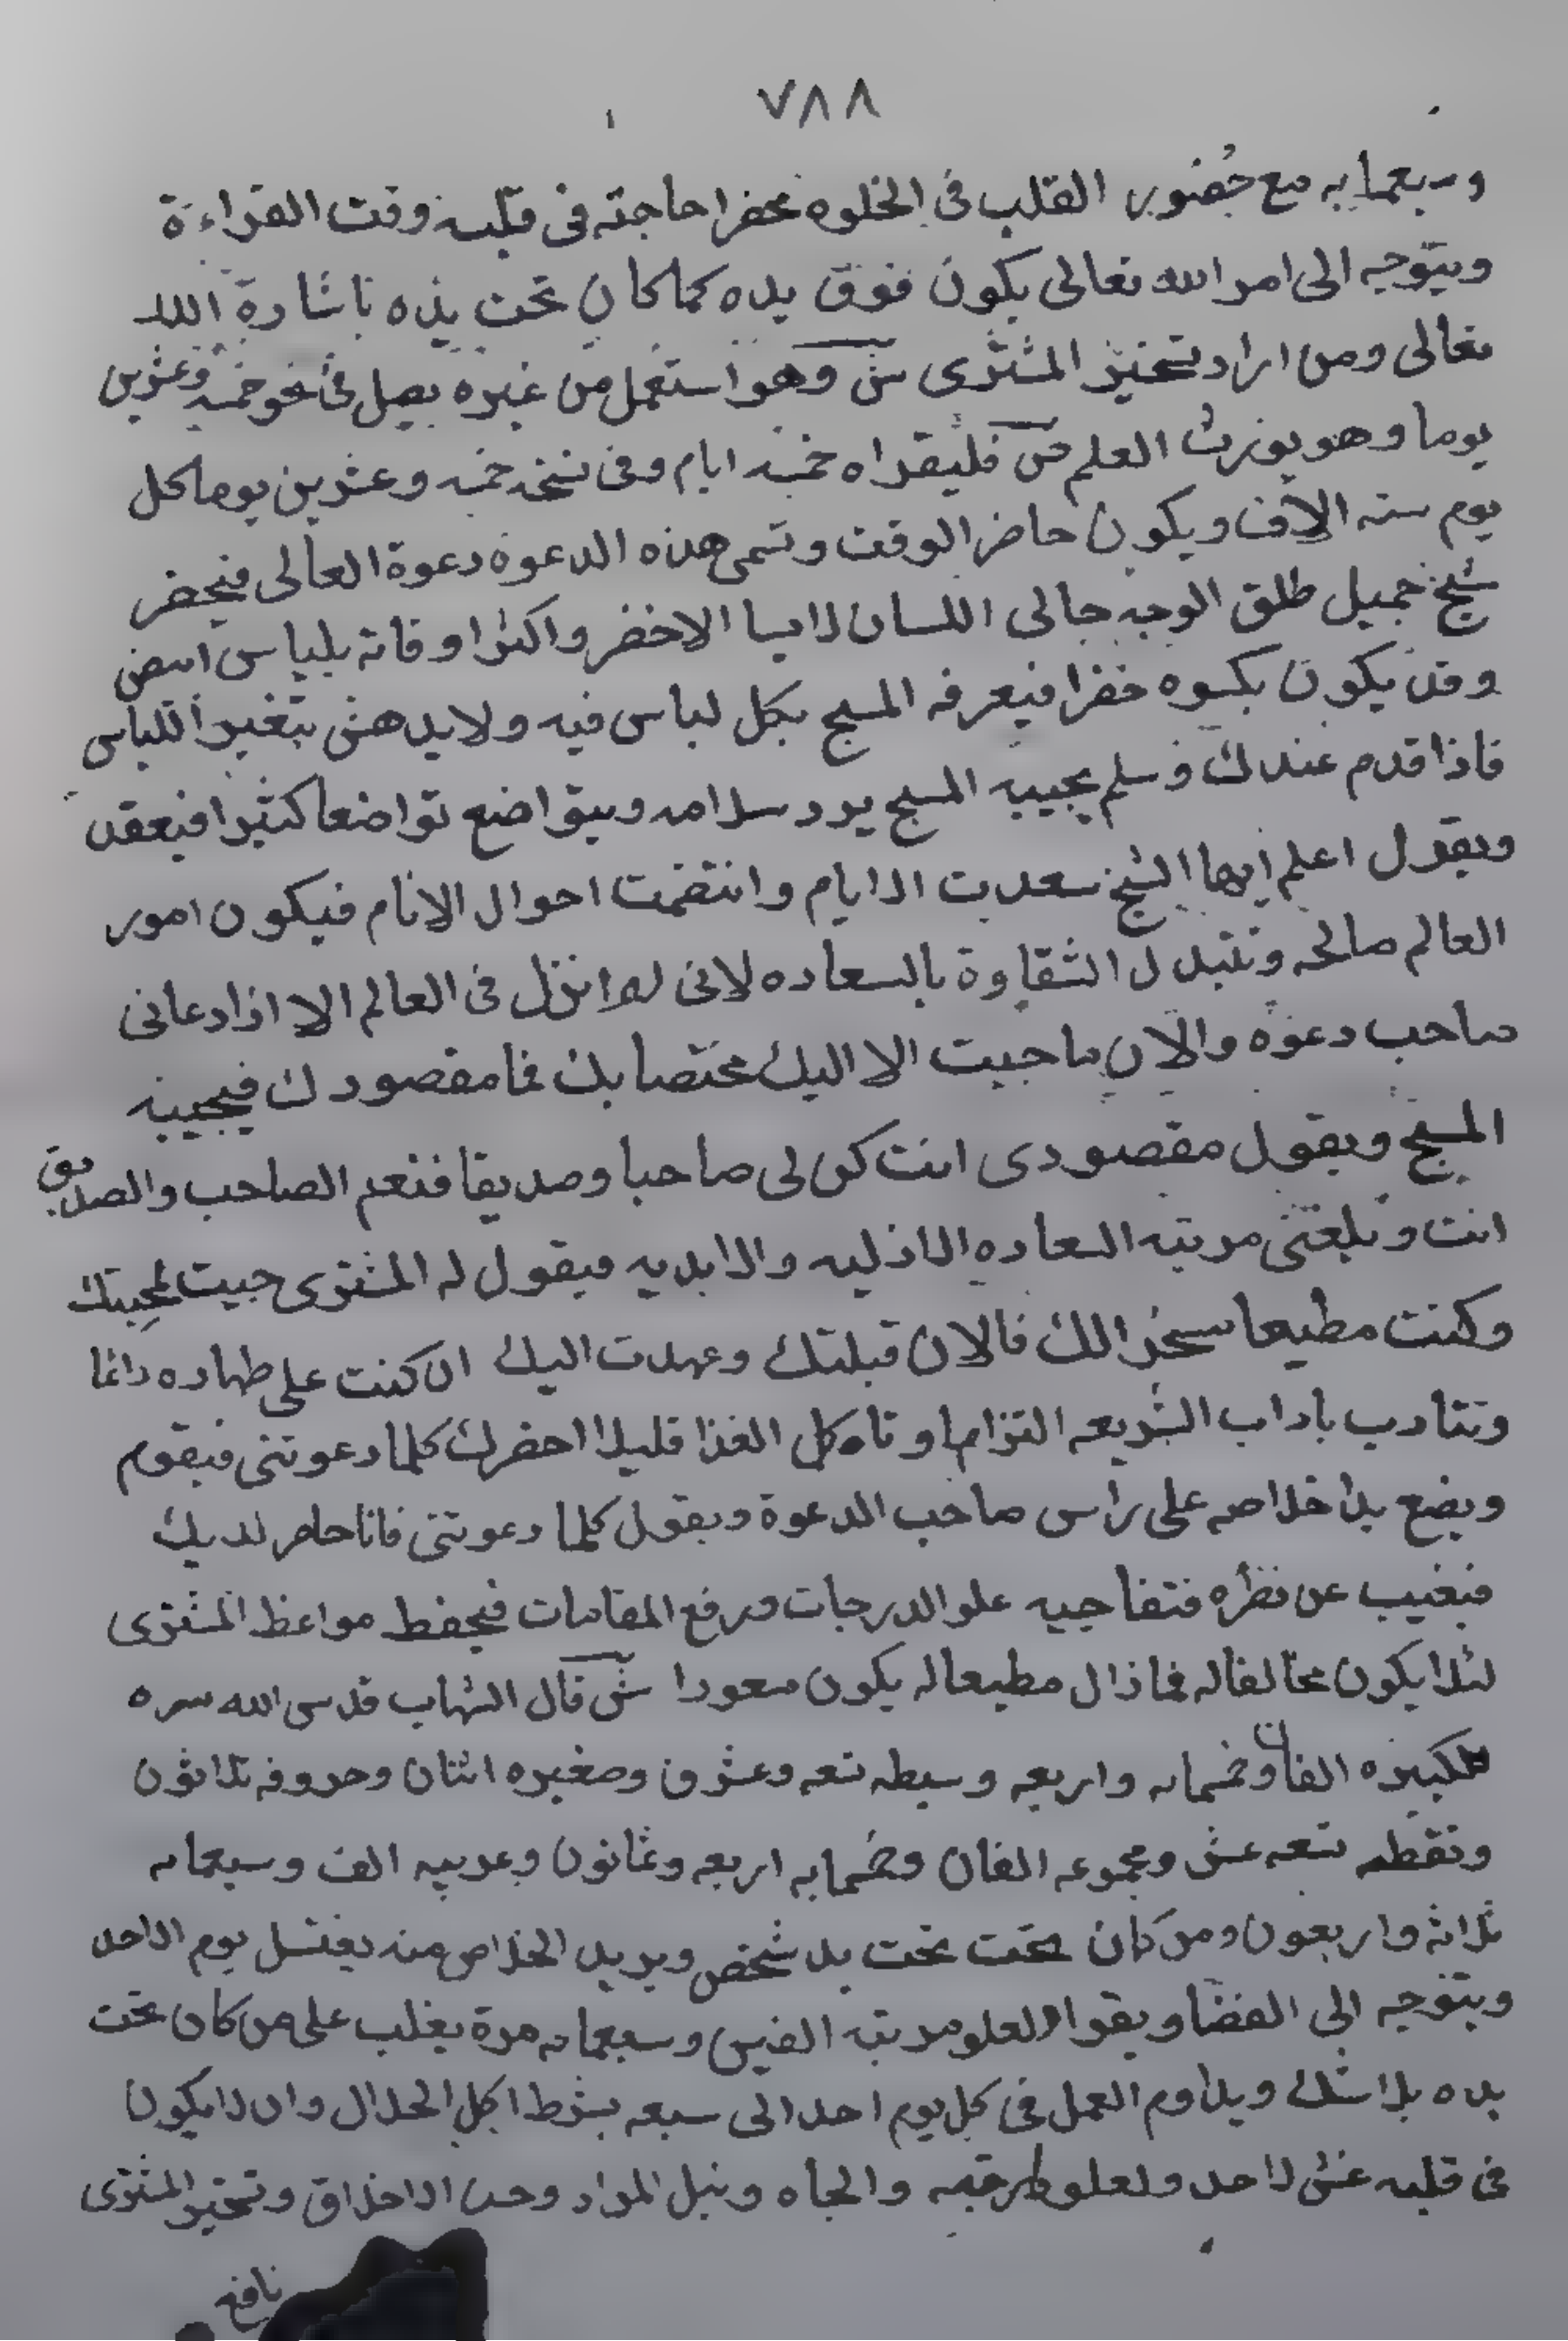 ٧٨٨
وسبعمايه مع حضور القلب فى الخلوه محضرا حاجته فى قلبه وقت القراءة
ويتوجه الى امر الله تعالى يكون فوق يده كما كان تحت يده باشارة الله
تعالى ومن اراد تسخير المشترى ش وهو استعمل من غيره يصل فى نحو خمسه وعشرين
يوما وهو يورث العلم ص فليقراه خمسه ايام وفى نسخه خمسه وعشرين يوما كل
يوم سته الاف ويكون حاضر الوقت وتسمى هذه الدعوه دعوة العالى فيحضر
شيخ جميل طلق الوجه حالى اللسان لابسا الاخضر واكثر اوقاته بلباس ابيض
وقد يكون بكسوه خضرا فيعرفه المسبح بكل لباس فيه ولا يدهش بتغير اللباس
فاذا قدم عندك وسلم يجيبه المسبح يرد سلامه ويتواضع تواضعا كثيرا فيعقد
ويقول اعلم ايها الشيخ سعدت الايام وانتضمت احوال الانام فيكون امور
العالم صالحه وتتبدل الشقاوة بالسعاده لانى لم انزل فى العالم الا اذا دعانى
صاحب دعوه والان ما جيت الا اليك مختصا بك فما مقصودك فيجيبه
المسبح ويقول مقصودى انت كن لى صاحبا وصديقا فنعم الصاحب والصديق
انت وبلغنى مرتبه السعاده الازليه والابديه فيقول له المشترى جيت لمحبتك
وكنت مطيعا مسخرا لك فالان قبلتك وعهدت اليك ان كنت على طهاره دائما
وتتادب باداب الشريعه التزاما وتاكل الغذا قليلا احضرك كلما دعوتنى فيقوم
ويضع يد اخلاصه على راس صاحب الدعوة ويقول كلما دعوتنى فانا حاضر لديك
فيغيب عن نظره فتفاجيه علو الدرجات ورفع المقامات فيحفظ مواعظ المشترى
لئلا يكون مخالفا له فما زال مطيعا له يكون مسعودا ش قال الشهاب قدس الله سره
كبيره الفان وخمسمايه واربعه وسيطه تسعه وعشرون وصغيره اثنان وحروفه ثلاثون
ونقطه تسعه عشر ومجموعه الفان وخمسمايه اربعه وثمانون وعربيه الف وسبعمايه
ثلاثه واربعون ومن كان تحت تحت يد شخص ويريد الخلاص منه يغتسل يوم الاحد
ويتوجه الى الفضا ويقرا لعلو مرتبه الفين وسبعمايه مرة يغلب على من كان تحت
يده بلا شك ويداوم العمل فى كل يوم احد الى سبعه بشرط اكل الحلال وان لا يكون
فى قلبه غش لاحد ولعلو المرتبه والجاه ونيل المراد وحسن الاخلاق وتسخير المشترى
نافع